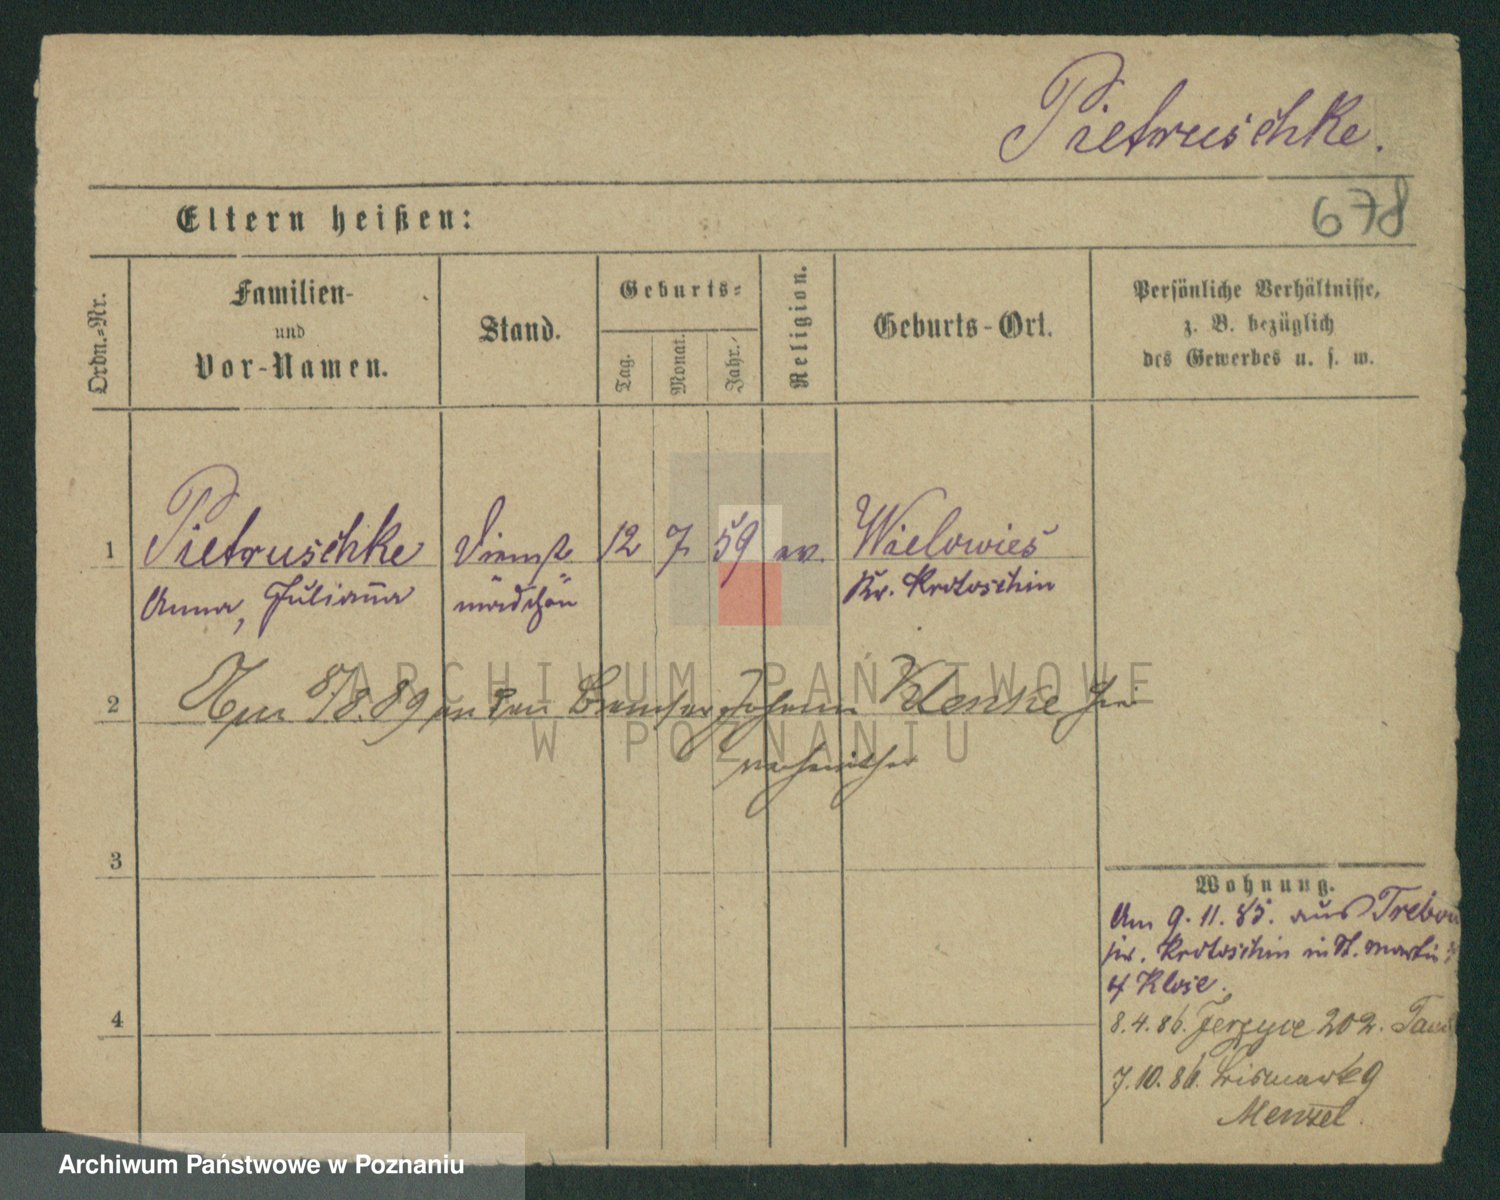 Pietruschke.
Eltern heißen:
678
Ordn.-Nr.
Familien-
und
Vor-Namen.
Stand.
Geburts-
Tag.
Monat.
Jahr.
Religion.
Geburts-Ort.
Persönliche Verhältnisse,
z. B. bezüglich
des Gewerbes u. s. w.
1 Pietruschke Dienst 12 7 59 ev. Wielowies
Anna, Julianna mädchen Kr. Krotoschin
2 Am 8/8.89 an den Johann Klenke
3
4
Wohnung.
Am 9.11.85. aus
Krotoschin in St. Martin
4 Klose.
8.4.86. Jerzyce 202.
7.10.86. Bismark 9
Menzel.
ARCHIWUM PAŃSTWOWE
W POZNANIU
Archiwum Państwowe w Poznaniu